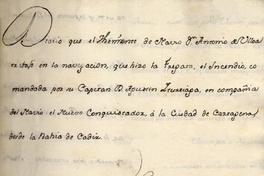 Diario que el Theniente de Navio Dn Antonio de Ulloa
en la navegacion, que hizo la Fragata, el Incendio, co
mandada por su Capitan D. Agustin Idiaquez, en compañia
del Navio el Nuevo Conquistador, à la Ciudad de Cartagena
desde la Bahia de Cadiz.